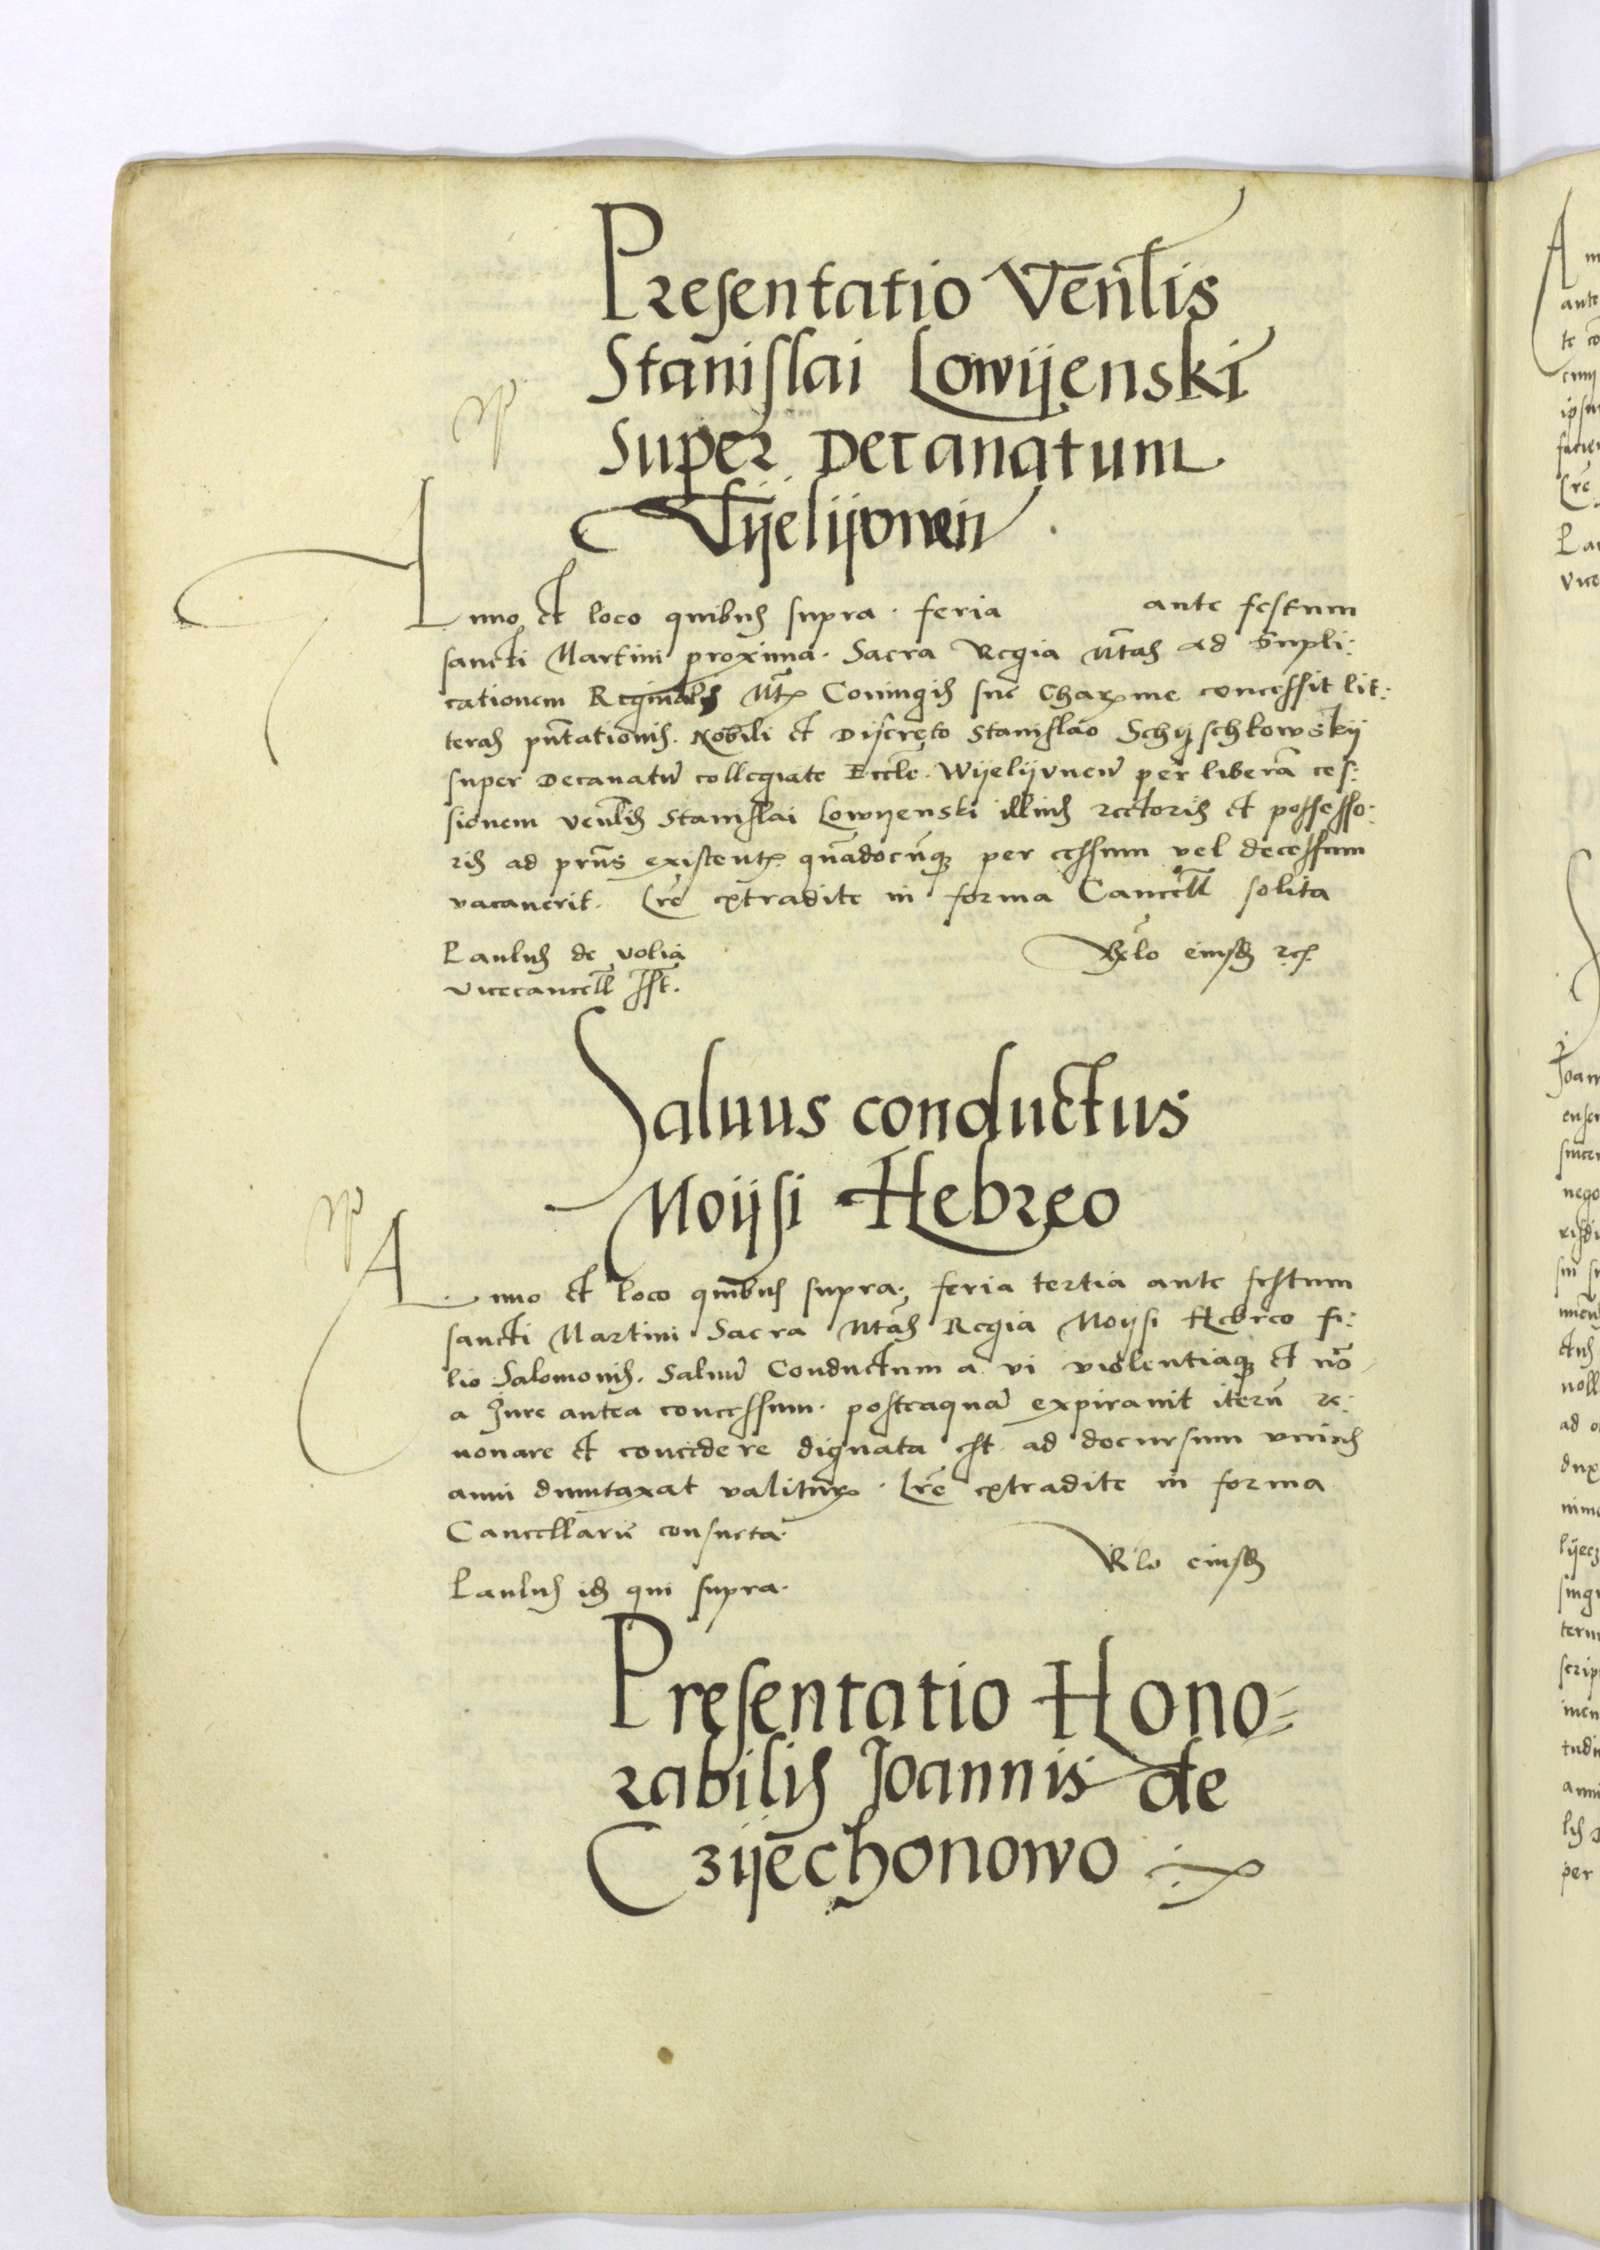 Presentatio Venlis
Stanislai Lowijenski
Super Decanatum
Vijelijvnen̄
Anno et loco quibus supra. feria ante festum
sancti Martini proxima. Sacra Regia Mtas ad Supli:
cationem Reginalis Mtis Coniugis sue Charme concessit lit:
teras pñtationis. Nobili et Discreto Stanislao Schyschkowskij
super Decanatū collegiate Eccle. Wijelijvneñ per liberā ces:
sionem venlis Stanislai Lowijenski illius rectoris et possesso:
ris ad prñs existent. quādocūq; per cessum vel decessum
vacaverit. Lrē extradite in forma Cancell solita
Paulus de volia
Vicecancell sst.
Rlo eiusd
Saluus conductus
Moijsi Hebreo
Anno et loco quibus supra. feria tertia ante festum
sancti Martini Sacra Mtas Regia Moijsi Hebreo fi:
lio Salomonis. Saluū Conductum a vi violentiaq; et nō
a Jure antea concessum. posteaquā expirauit iterū re:
nouare et concedere dignata est ad decursum vnius
anni duntaxat valitur. Lrē extradite in forma
Cancellarie consueta.
Rlo eiusd
Paulus id qui supra.
Presentatio Hono=
rabilis Joannis de
Czijechonowo